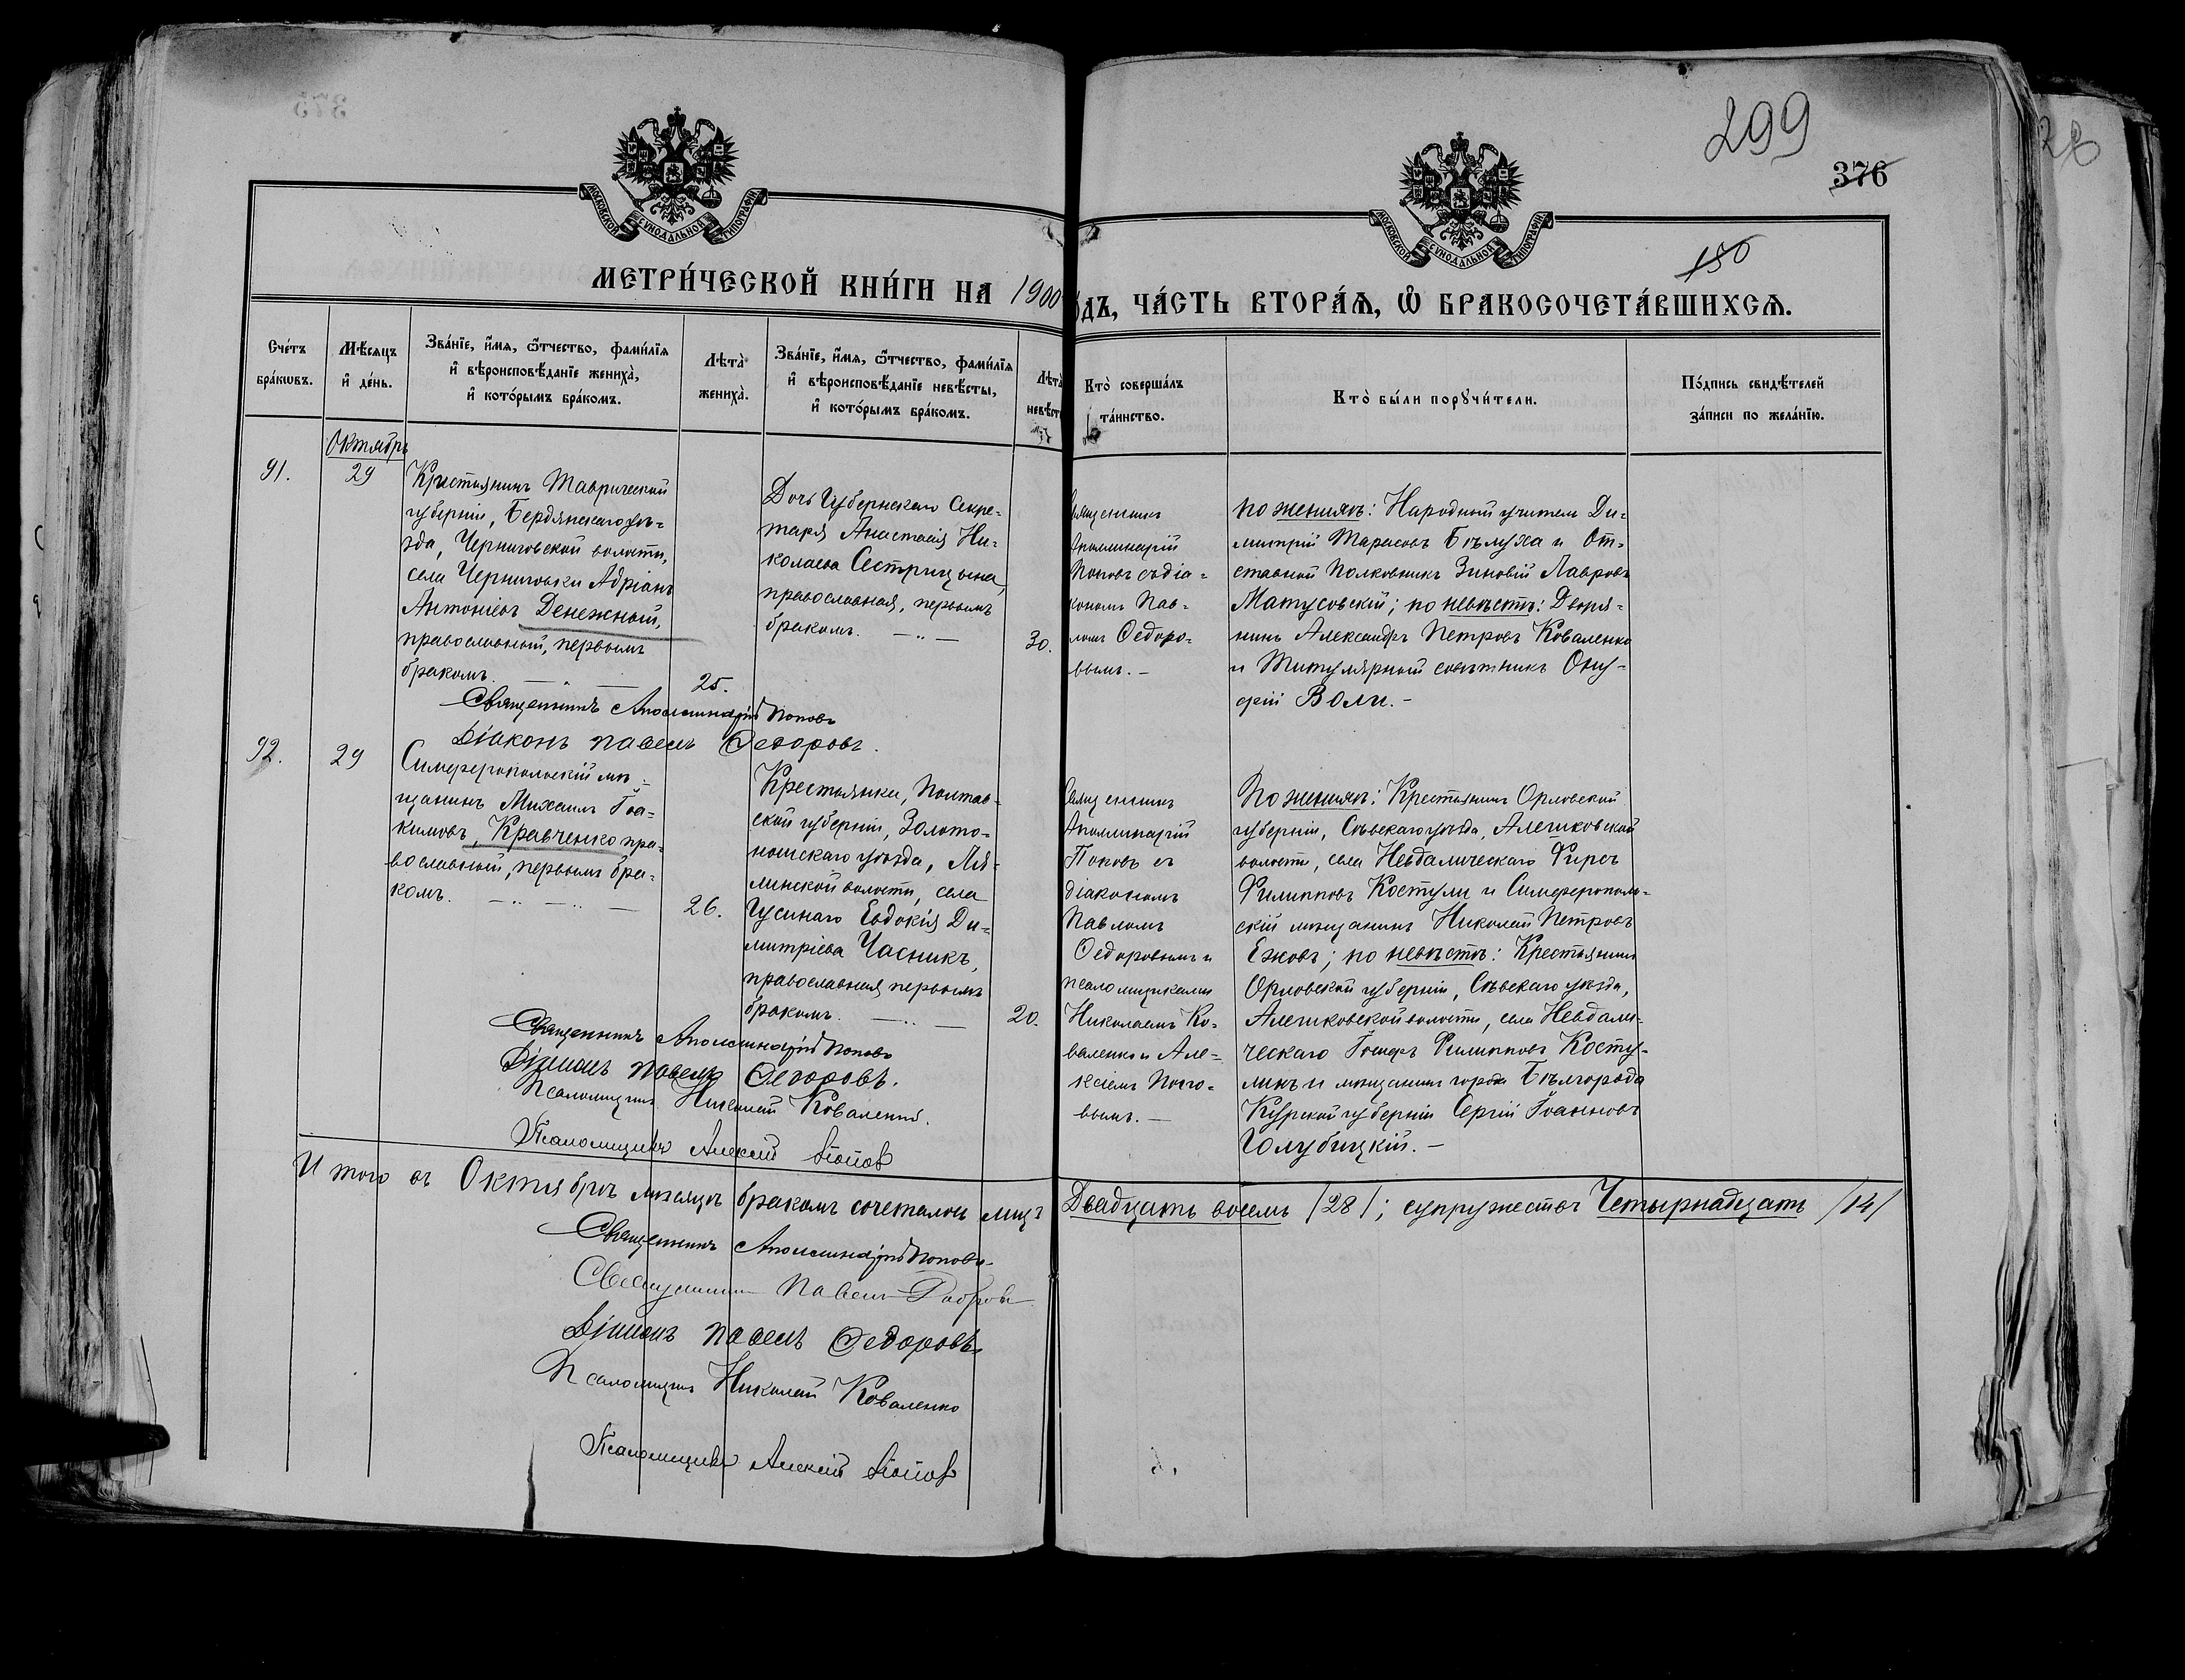 299
376
150
МОСКОВСКОЙ СУНОДАЛЬНОЙ ТИПОГРАФІИ
МОСКОВСКОЙ СУНОДАЛЬНОЙ ТИПОГРАФІИ
МЕТРИ́ЧЕСКОЙ КНИ́ГИ НА 1900
ОДЪ, ЧА́СТЬ ВТОРА́Ѧ, Ѽ БРАКОСОЧЕТА́ВШИХСѦ.
Сче́тъ
бра́кѡвъ.
Мѣ́сѧцъ
и҆ де́нь.
Зва́нїе, и҆́мѧ, ѻ҆́тчество, фами́лїѧ
и҆ вѣроисповѣ́данїе жениха̀,
и҆ кото́рымъ бра́комъ.
Лѣта̀
жениха̀.
Зва́нїе, и҆́мѧ, ѻ҆́тчество, фами́лїѧ
и҆ вѣроисповѣ́данїе невѣ́сты,
и҆ кото́рымъ бра́комъ.
Лѣта̀
невѣст
Кто̀ соверша́лъ
та́инство.
Кто̀ бы́ли порꙋчи́тели.
По́дпись свидѣ́телей
за́писи по жела́нїю.
Октябрь
91.
29
Крестьянинъ Таврической
губерніи, Бердянскаго уѣ-
зда, Черниговской волости,
села Черниговки Адріанъ
Антоніевъ Денежный,
православный, первымъ
бракомъ.
25.
Дочь Губернскаго Секре-
таря Анастасія Ни-
колаева Сестрицына,
православная, первымъ
бракомъ.
30.
Священникъ
Аполлинарій
Поповъ съ діа-
кономъ Пав-
ломъ Ѳедоро-
вымъ.
По женихѣ: Народный учитель Ди-
митрій Тарасовъ Бѣлуха и От-
ставной Полковникъ Зиновій Лавровъ
Матусовскій; по невѣстѣ: Дворя-
нинъ Александръ Петровъ Коваленко
и Титулярный совѣтникъ Ону-
фрій Воли.
Священникъ Аполлинарій Поповъ
Діаконъ Павелъ Ѳедоровъ.
92.
29
Симферопольскій мѣ-
щанинъ Михаилъ Іоа-
кимовъ, Кравченко пра-
вославный, первымъ бра-
комъ.
26.
Крестьянка, Полтав-
ской губерніи, Золото-
ношскаго уѣзда, Ля-
линской волости, села
Гусинаго Евдокія Ди-
митріева Часникъ,
православная первымъ
бракомъ.
20.
Священникъ
Аполлинарій
Поповъ съ
діакономъ
Павломъ
Ѳедоровымъ и
псаломщиками
Николаемъ Ко-
валенко и Але-
ксіемъ Попо-
вымъ.
По женихѣ: Крестьянинъ Орловской
губерніи, Сѣвскаго уѣзда, Алешковской
волости, села Невдалическаго Фирсъ
Филипповъ Костули и Симферополь-
скій мѣщанинъ Николай Петровъ
Ежовъ; по невѣстѣ: Крестьянинъ
Орловской губерніи, Сѣвскаго уѣзда,
Алешковской волости, села Невдали-
ческаго Филипповъ Косту-
линъ и мѣщанинъ города Бѣлгорода
Курской губерніи Сергій Іоанновъ
Голубицкій.
Священникъ Аполлинарій Поповъ
Діаконъ Павелъ Ѳедоровъ.
Псаломщикъ Николай Коваленко.
Псаломщикъ Алексій Поповъ
Итого въ Октябрѣ мѣсяцѣ бракомъ сочеталось лицъ Двадцать восемь /28/; супружествъ Четырнадцать /14/
Священникъ Аполлинарій Поповъ
Священникъ Павелъ
Діаконъ Павелъ Ѳедоровъ
Псаломщикъ Николай Коваленко
Псаломщикъ Алексій Поповъ